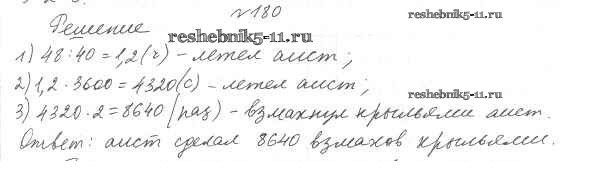 №180
reshebnik5-11.ru
Решение
reshebnik5-11.ru
1) 48:40=1,2(ч) - летел аист;
2) 1,2·3600=4320(с) - летел аист;
reshebnik5-11.ru
3) 4320·2=8640 (раз) - взмахнул крыльями аист.
Ответ: аист сделал 8640 взмахов крыльями.